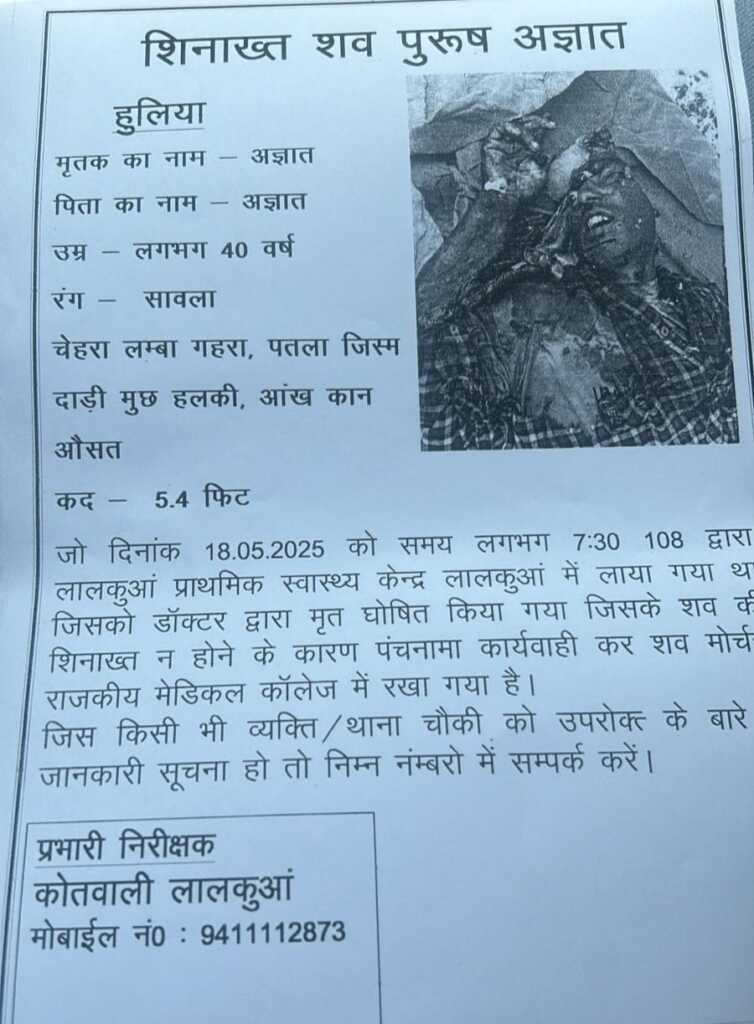 शिनाख्त शव पुरूष अज्ञात
हुलिया
मृतक का नाम – अज्ञात
पिता का नाम – अज्ञात
उम्र – लगभग 40 वर्ष
रंग – सावला
चेहरा लम्बा गहरा, पतला जिस्म
दाड़ी मुछ हलकी, आंख कान
औसत
कद – 5.4 फिट
जो दिनांक 18.05.2025 को समय लगभग 7:30 108 द्वारा
लालकुआं प्राथमिक स्वास्थ्य केन्द्र लालकुआं में लाया गया
जिसको डॉक्टर द्वारा मृत घोषित किया गया जिसके शव
शिनाख्त न होने के कारण पंचनामा कार्यवाही कर शव
राजकीय मेडिकल कॉलेज में रखा गया है।
जिस किसी भी व्यक्ति/थाना चौकी को उपरोक्त के बारे
जानकारी सूचना हो तो निम्न नंम्बरो में सम्पर्क करें।
प्रभारी निरीक्षक
कोतवाली लालकुआं
मोबाईल नं0 : 9411112873